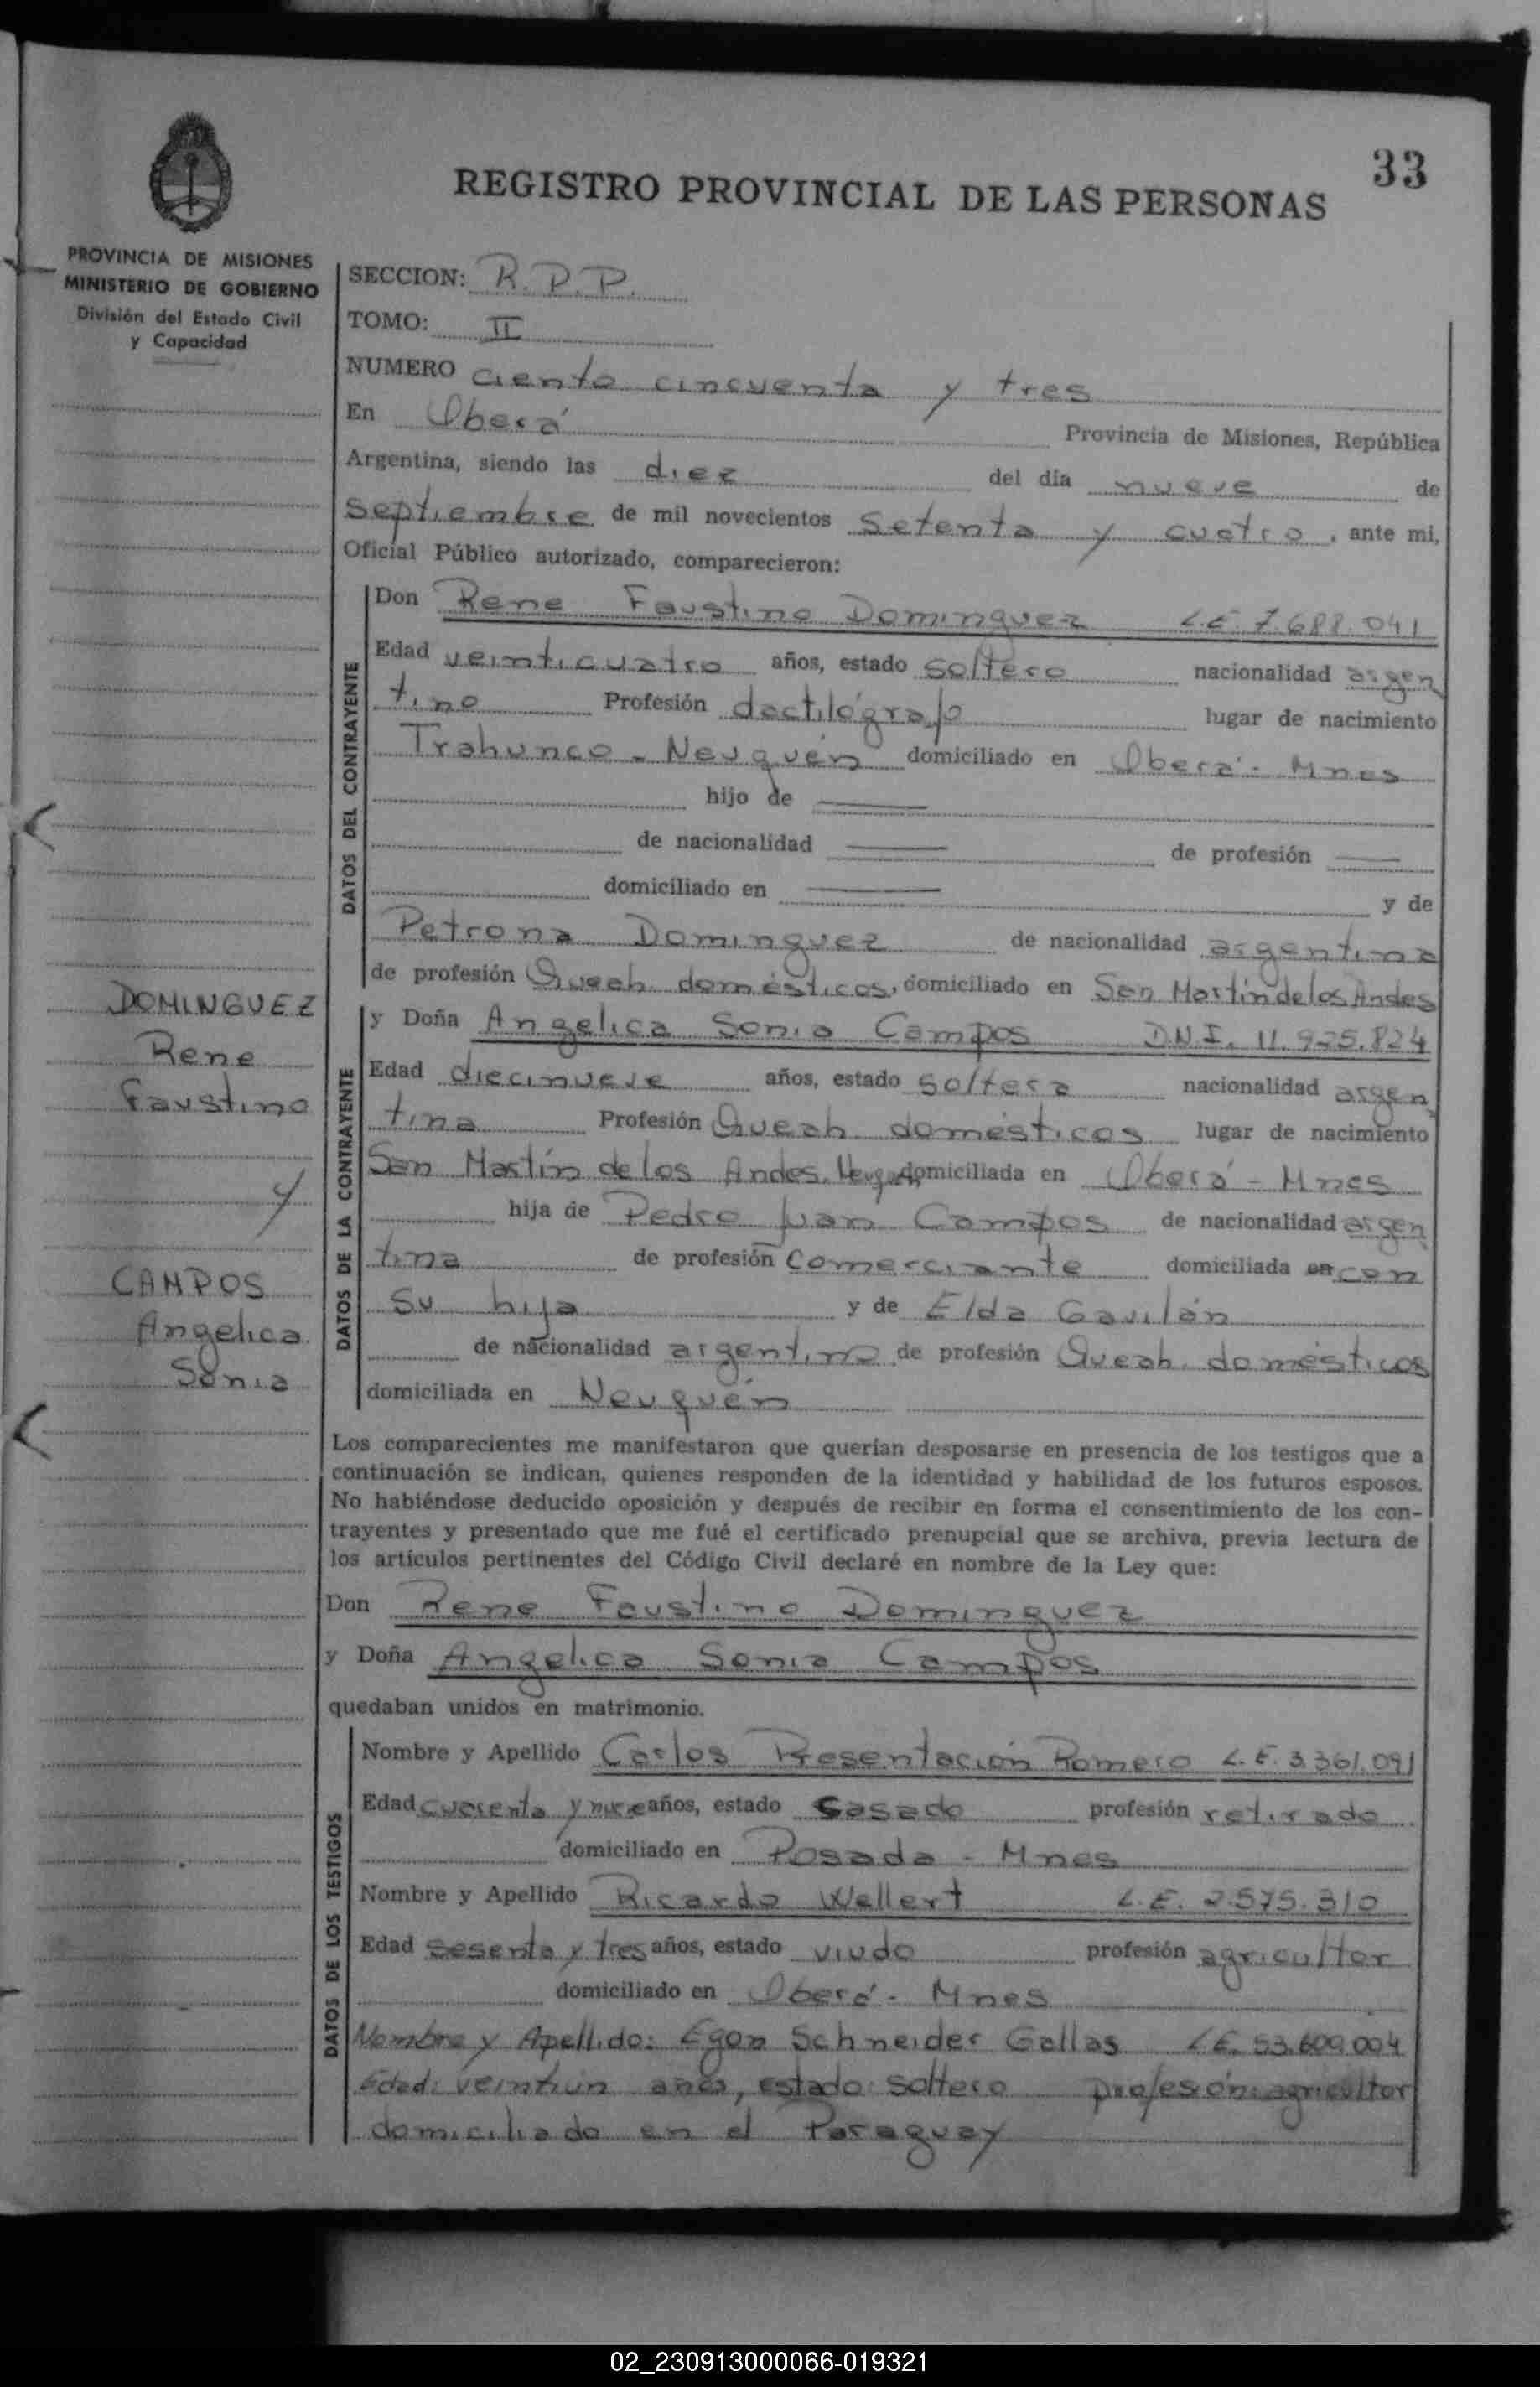 33
REGISTRO PROVINCIAL DE LAS PERSONAS
PROVINCIA DE MISIONES
MINISTERIO DE GOBIERNO
División del Estado Civil
y Capacidad
SECCION: R.P.P.
TOMO: II
NUMERO ciento cincuenta y tres
En Oberá Provincia de Misiones, República
Argentina, siendo las diez del día nueve de
septiembre de mil novecientos setenta y cuatro, ante mi,
Oficial Público autorizado, comparecieron:
DATOS DEL CONTRAYENTE
Don Rene Faustino Dominguez L.E. 7.688.041
Edad veinticuatro años, estado soltero nacionalidad argen
tino Profesión dactilógrafo lugar de nacimiento
Trahunco - Neuquén domiciliado en Oberá - Mnes
hijo de
de nacionalidad de profesión
domiciliado en y de
Petrona Dominguez de nacionalidad argentina
de profesión Queah. domésticos, domiciliado en San Martín de los Andes
DATOS DE LA CONTRAYENTE
y Doña Angelica Sonia Campos D.N.I. 11.925.824
Edad diecinueve años, estado soltera nacionalidad argen
tina Profesión Queah domésticos lugar de nacimiento
San Martín de los Andes. domiciliada en Oberá - Mnes
hija de Pedro Juan Campos de nacionalidad argen
tina de profesión comerciante domiciliada en con
su hija y de Elda Gavilán
de nacionalidad argentina de profesión Queah. domésticos
domiciliada en Neuquén
DOMINGUEZ
Rene
Faustino
y
CAMPOS
Angelica
Sonia
Los comparecientes me manifestaron que querían desposarse en presencia de los testigos que a
continuación se indican, quienes responden de la identidad y habilidad de los futuros esposos.
No habiéndose deducido oposición y después de recibir en forma el consentimiento de los con-
trayentes y presentado que me fué el certificado prenupcial que se archiva, previa lectura de
los artículos pertinentes del Código Civil declaré en nombre de la Ley que:
Don Rene Faustino Dominguez
y Doña Angelica Sonia Campos
quedaban unidos en matrimonio.
DATOS DE LOS TESTIGOS
Nombre y Apellido Carlos Presentación Romero L.E. 3.361.091
Edad cuarenta y nueve años, estado casado profesión retirado
domiciliado en Posada - Mnes
Nombre y Apellido Ricardo Wellert L.E. 2.575.310
Edad sesenta y tres años, estado viudo profesión agricultor
domiciliado en Oberá - Mnes
Nombre y Apellido: Egon Schneider Gallas L.E. 53.600.004
Edad: veintiún años, estado: soltero profesión: agricultor
domiciliado en el Paraguay
02_230913000066-019321